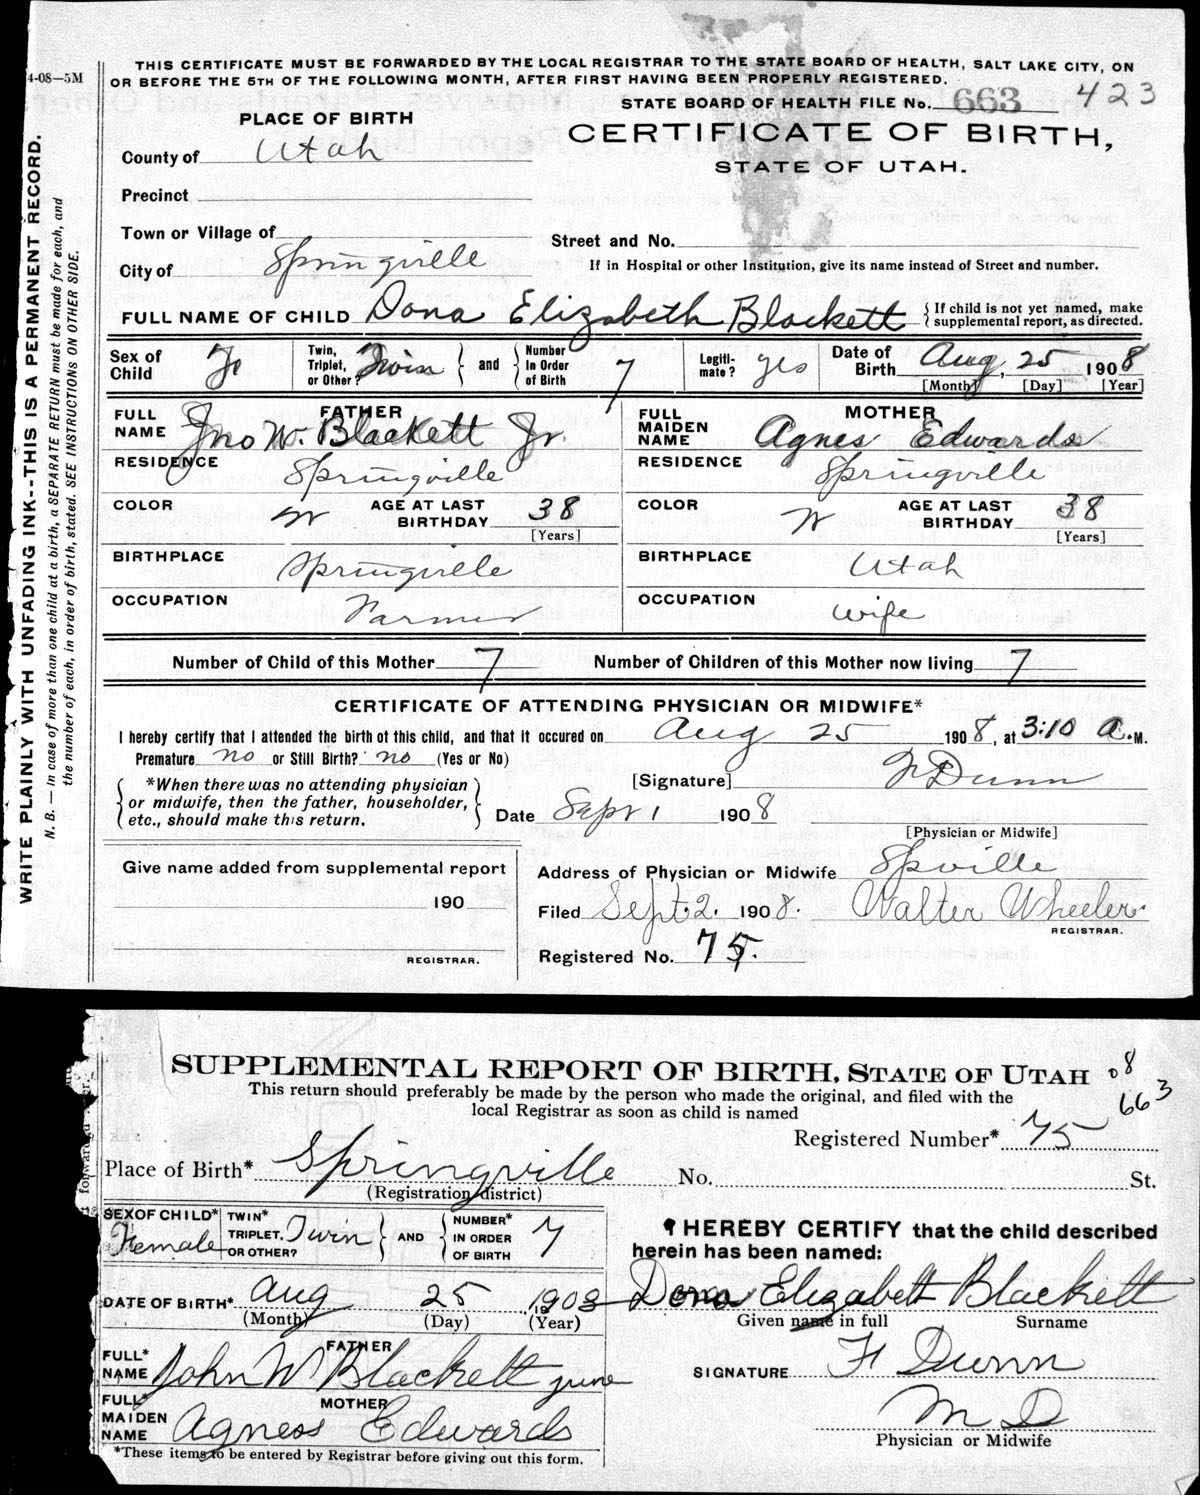 4-08—5M
THIS CERTIFICATE MUST BE FORWARDED BY THE LOCAL REGISTRAR TO THE STATE BOARD OF HEALTH, SALT LAKE CITY, ON
OR BEFORE THE 5TH OF THE FOLLOWING MONTH, AFTER FIRST HAVING BEEN PROPERLY REGISTERED.
STATE BOARD OF HEALTH FILE No. 663 423
PLACE OF BIRTH
CERTIFICATE OF BIRTH,
STATE OF UTAH.
County of Utah
Precinct
Town or Village of
Street and No.
City of Springville
If in Hospital or other Institution, give its name instead of Street and number.
FULL NAME OF CHILD Dona Elizabeth Blackett { If child is not yet named, make
supplemental report, as directed.
Sex of Child F Twin, Triplet, or Other? Twin } and { Number In Order of Birth 7 Legiti- mate? yes Date of Birth Aug, 25 1908
[Month] [Day] [Year]
FATHER
FULL NAME Jno W. Blackett Jr.
MOTHER
FULL MAIDEN NAME Agnes Edwards
RESIDENCE Springville
RESIDENCE Springville
COLOR W AGE AT LAST BIRTHDAY 38 [Years]
COLOR W AGE AT LAST BIRTHDAY 38 [Years]
BIRTHPLACE Springville
BIRTHPLACE Utah
OCCUPATION Farmer
OCCUPATION Wife
Number of Child of this Mother 7 Number of Children of this Mother now living 7
CERTIFICATE OF ATTENDING PHYSICIAN OR MIDWIFE*
I hereby certify that I attended the birth of this child, and that it occured on Aug 25 1908, at 3:10 a.M.
Premature no or Still Birth? no (Yes or No)
[Signature] F Dunn
*When there was no attending physician
or midwife, then the father, householder,
etc., should make this return.
Date Sept 1 1908
[Physician or Midwife]
Give name added from supplemental report
190
REGISTRAR.
Address of Physician or Midwife Spville
Filed Sept. 2. 1908. Walter Wheeler.
REGISTRAR.
Registered No. 75.
WRITE PLAINLY WITH UNFADING INK--THIS IS A PERMANENT RECORD.
N. B. — In case of more than one child at a birth, a SEPARATE RETURN must be made for each, and
the number of each, in order of birth, stated. SEE INSTRUCTIONS ON OTHER SIDE.
SUPPLEMENTAL REPORT OF BIRTH, STATE OF UTAH 08
663
This return should preferably be made by the person who made the original, and filed with the
local Registrar as soon as child is named
Registered Number* 75
Place of Birth* Springville No. St.
(Registration district)
SEX OF CHILD* Female TWIN* TRIPLET, OR OTHER? Twin } AND { NUMBER* IN ORDER OF BIRTH 7
I HEREBY CERTIFY that the child described
herein has been named:
DATE OF BIRTH* Aug 25 1908
(Month) (Day) (Year)
Dona Elizabett Blackett
Given name in full Surname
FATHER
FULL* NAME John W Blackett june
SIGNATURE F Dunn
MOTHER
FULL* MAIDEN NAME Agness Edwards
M D
Physician or Midwife
*These items to be entered by Registrar before giving out this form.